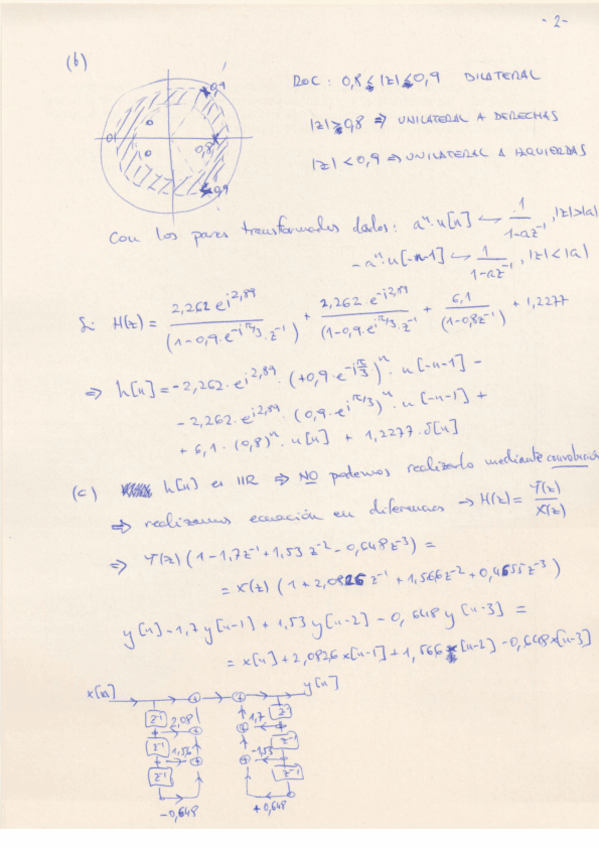 - 2 -
(b)
ROC: 0,8 ≤ |z| ≤ 0,9 BILATERAL
0,9
0,8
0,9
|z| ≥ 0,8 ⇒ UNILATERAL A DERECHAS
|z| < 0,9 ⇒ UNILATERAL A IZQUIERDAS
Con los pares transformados dados: aⁿ·u[n] ↔ 1/(1-az⁻¹), |z|>|a|
-aⁿ·u[-n-1] ↔ 1/(1-az⁻¹), |z|<|a|
Si H(z) = 2,262 e^{i2,89}/(1-0,9·e^{-iπ/3}·z⁻¹) + 2,262·e^{-i2,89}/(1-0,9·e^{iπ/3}·z⁻¹) + 6,1/(1-0,8z⁻¹) + 1,2277
⇒ h[n] = -2,262·e^{i2,89}·(+0,9·e^{-iπ/3})ⁿ·u[-n-1] -
- 2,262·e^{i2,89}·(0,9·e^{iπ/3})ⁿ·u[-n-1] +
+ 6,1·(0,8)ⁿ·u[n] + 1,2277·δ[n]
(c) h[n] es IIR ⇒ NO podemos realizarlo mediante convolución
⇒ realizamos ecuación en diferencias → H(z) = Y(z)/X(z)
⇒ Y(z) (1-1,7z⁻¹+1,53z⁻²-0,648z⁻³) =
= X(z) (1+2,0826z⁻¹+1,566z⁻²+0,4655z⁻³)
y[n]-1,7y[n-1]+1,53y[n-2]-0,648y[n-3] =
= x[n]+2,0826x[n-1]+1,566x[n-2]-0,648x[n-3]
x[n] y[n]
z⁻¹ 2,08 1,7 z⁻¹
z⁻¹ 1,56 -1,53 z⁻¹
z⁻¹ z⁻¹
-0,648 +0,648